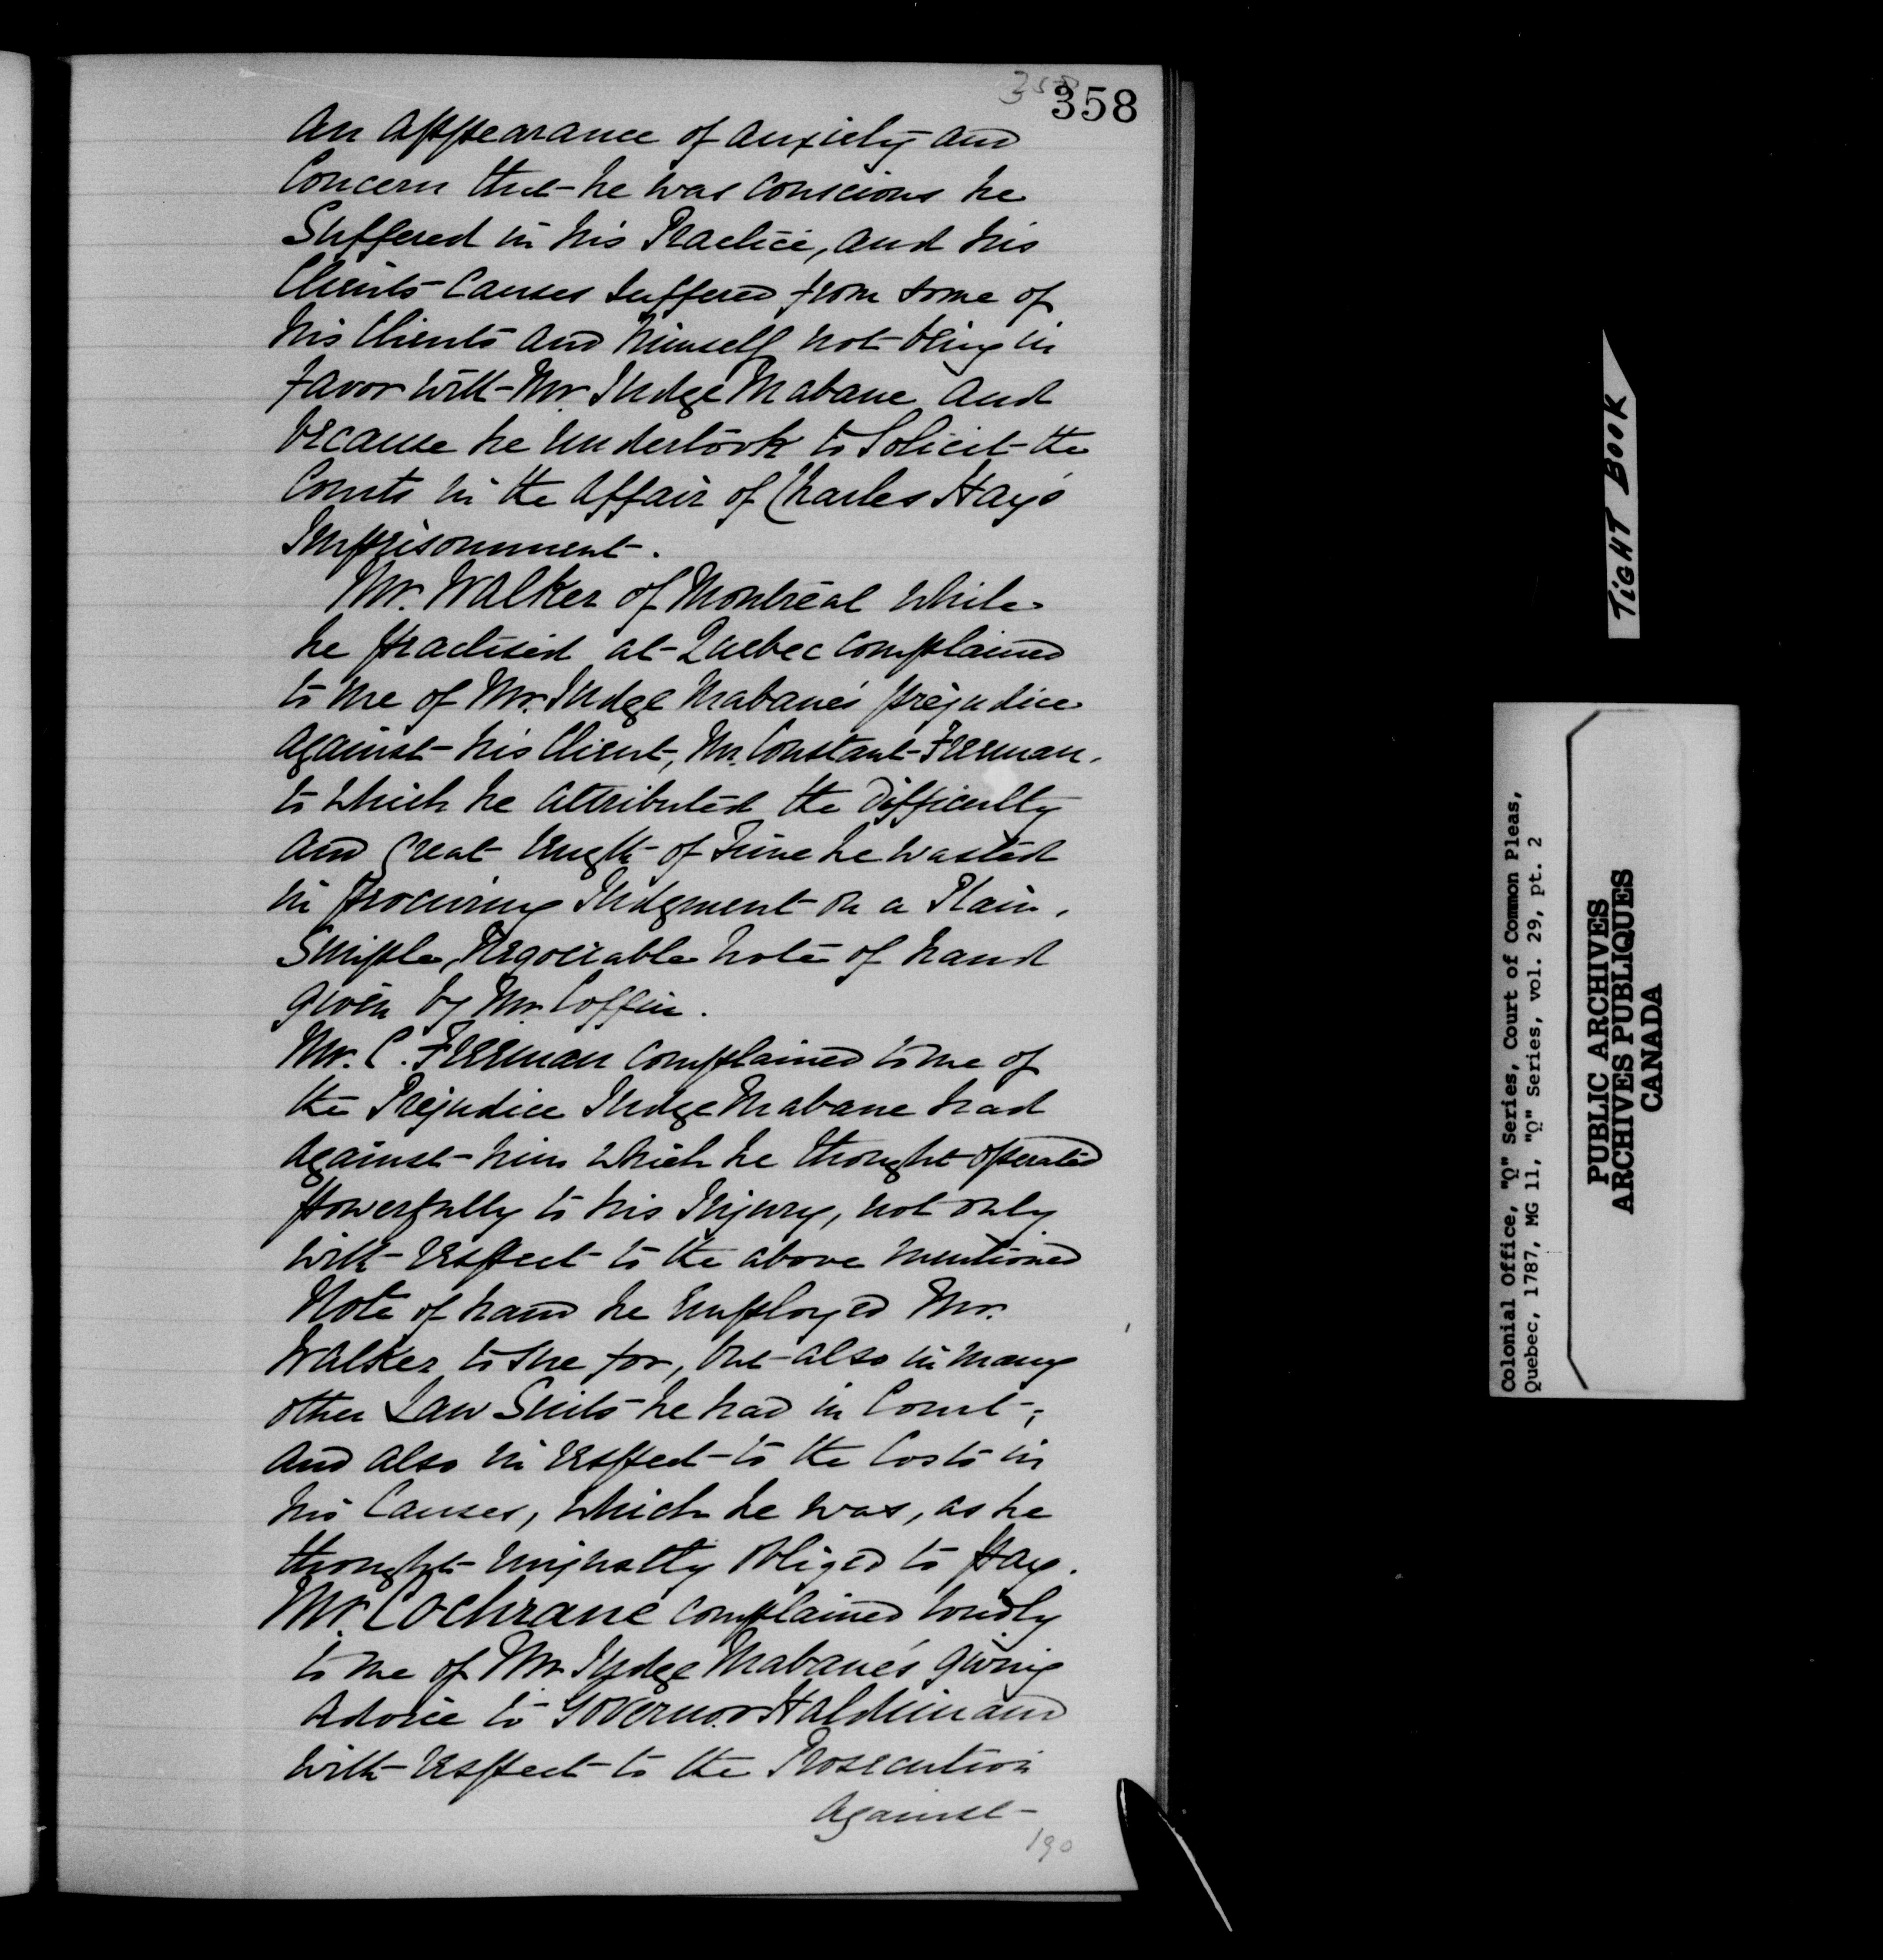 358
358
An appearance of anxiety and
Concern that he was conscious he
Suffered in his Practice, and his
Clients Causes suffered from some of
his Clients and himself not being in
favor with Mr. Judge Mabane and
because he undertook to Solicit the
Courts in the Affair of Charles Hay's
Imprisonment.
Mr. Walker of Montreal while
he practised at Quebec complained
to me of Mr. Judge Mabane's prejudice
against his Client, Mr. Constant Freeman,
to which he attributed the difficulty
and great length of Time he wasted
in procuring Judgment on a Plain,
Simple, Negociable note of hand
given by Mr. Coffin.
Mr. C. Freeman complained to me of
the Prejudice Judge Mabane had
against him which he thought operated
powerfully to his Injury, not only
with respect to the above mentioned
Note of hand he Employed Mr.
Walker to sue for, but also in many
other Law Suits he had in Court;
and also in respect to the Costs in
his Causes, which he was, as he
thought unjustly obliged to pay.
Mr. Cochrane complained loudly
to me of Mr. Judge Mabane's giving
Advice to Governor Haldimand
with respect to the Prosecution
against
190
TIGHT BOOK
Colonial Office, "Q" Series, Court of Common Pleas,
Quebec, 1787, MG 11, "Q" Series, vol. 29, pt. 2
PUBLIC ARCHIVES
ARCHIVES PUBLIQUES
CANADA